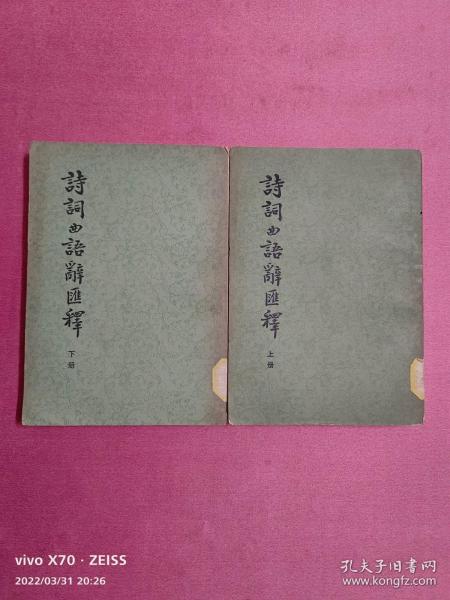 詩詞曲語辭匯釋
下册
詩詞曲語辭匯釋
上册
vivo X70 · ZEISS
2022/03/31 20:26
孔夫子旧书网
www.kongfz.com